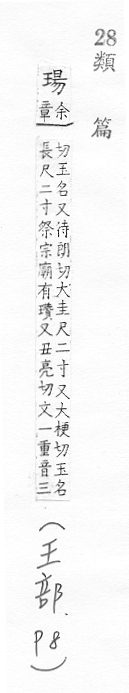 28
類篇
瑒
余
章
切玉名又待朗切大圭尺二寸又大梗切玉名
長尺二寸祭宗廟有瓚又丑亮切文一重音三
(王部.P8)